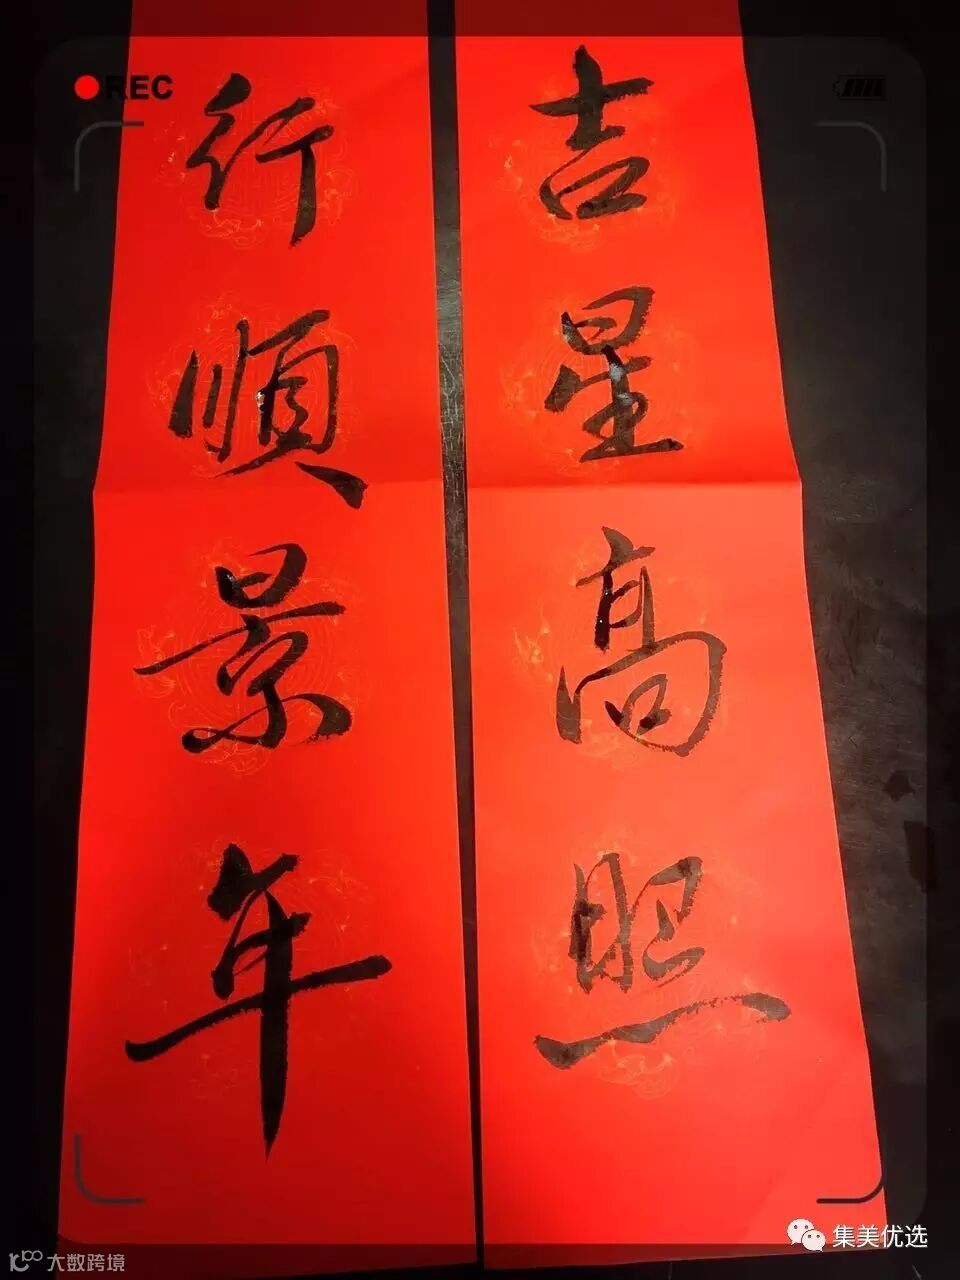 REC
吉星高照
行順景年
集美优选
大数跨境